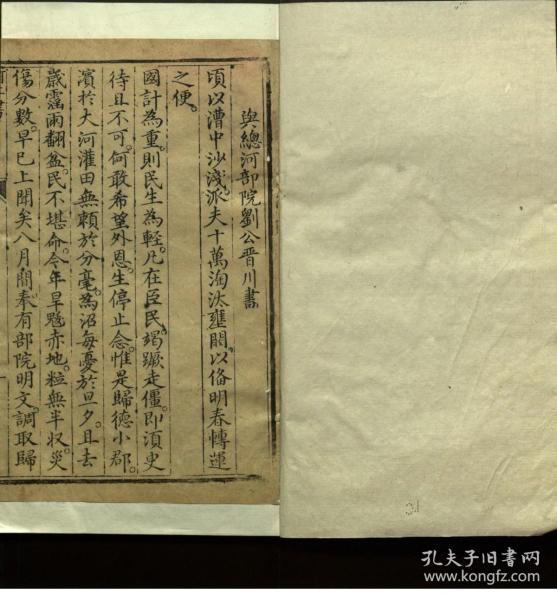 與總河部院劉公晋川書
頃以漕中沙淺派夫十萬淘汰壅閼以俻明春轉運
之便。
國計為重。則民生為輕。凡在臣民。竭蹶走僵。即須史
待且不可。何敢希望外恩。生停止念。惟是歸德小郡。
濱於大河灌田無賴於分毫。為沼每憂於旦夕。且去
歲霪雨翻盆。民不堪命。今年旱魃赤地。粒無半収。災
傷分數。早已上聞矣八月間奉有部院明文。調取歸
孔夫子旧书网
www.kongfz.com